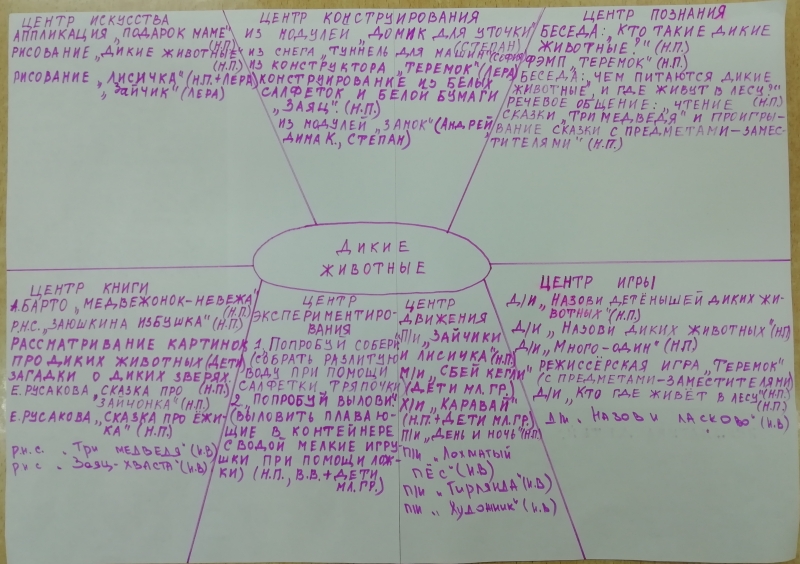 ЦЕНТР ИСКУССТВА
АППЛИКАЦИЯ „ПОДАРОК МАМЕ"
(Н.П.)
РИСОВАНИЕ „ДИКИЕ ЖИВОТНЫЕ"
(Н.П.)
РИСОВАНИЕ „ЛИСИЧКА" (Н.П.+ЛЕРА)
„ЗАЙЧИК" (ЛЕРА)
ЦЕНТР КОНСТРУИРОВАНИЯ
ИЗ МОДУЛЕЙ „ДОМИК ДЛЯ УТОЧКИ"
(СТЕПАН)
ИЗ СНЕГА „ТУННЕЛЬ ДЛЯ МАШИН" (СОФИЯ)
ИЗ КОНСТРУКТОРА „ТЕРЕМОК" (ЛЕРА)
КОНСТРУИРОВАНИЕ ИЗ БЕЛЫХ
САЛФЕТОК И БЕЛОЙ БУМАГИ
„ЗАЯЦ". (Н.П.)
ИЗ МОДУЛЕЙ „ЗАМОК" (АНДРЕЙ,
ДИМА К., СТЕПАН)
ЦЕНТР ПОЗНАНИЯ
БЕСЕДА: „КТО ТАКИЕ ДИКИЕ
ЖИВОТНЫЕ?" (Н.П.)
ФЭМП „ТЕРЕМОК" (Н.П.)
БЕСЕДА: „ЧЕМ ПИТАЮТСЯ ДИКИЕ
ЖИВОТНЫЕ, И ГДЕ ЖИВУТ В ЛЕСУ?"
(Н.П.)
РЕЧЕВОЕ ОБЩЕНИЕ: „ЧТЕНИЕ
СКАЗКИ „ТРИ МЕДВЕДЯ" И ПРОИГРЫ-
ВАНИЕ СКАЗКИ С ПРЕДМЕТАМИ-ЗАМЕС-
ТИТЕЛЯМИ" (Н.П.)
ДИКИЕ
ЖИВОТНЫЕ
ЦЕНТР КНИГИ
А.БАРТО „МЕДВЕЖОНОК-НЕВЕЖА"
(Н.П.)
Р.Н.С. „ЗАЮШКИНА ИЗБУШКА" (Н.П.)
РАССМАТРИВАНИЕ КАРТИНОК
ПРО ДИКИХ ЖИВОТНЫХ (ДЕТИ)
ЗАГАДКИ О ДИКИХ ЗВЕРЯХ.
(Н.П.)
Е. РУСАКОВА „СКАЗКА ПРО
ЗАЙЧОНКА" (Н.П.)
Е.РУСАКОВА „СКАЗКА ПРО ЁЖИ-
КА" (Н.П.)
р.н.с. „Три медведя" (И.В)
р.н.с „Заяц-хваста" (И.В)
ЦЕНТР
ЭКСПЕРИМЕНТИРО-
ВАНИЯ
1. ПОПРОБУЙ СОБЕРИ
(СОБРАТЬ РАЗЛИТУЮ
ВОДУ ПРИ ПОМОЩИ
САЛФЕТКИ, ТРЯПОЧКИ)
2. ПОПРОБУЙ ВЫЛОВИ"
(ВЫЛОВИТЬ ПЛАВАЮ-
ЩИЕ В КОНТЕЙНЕРЕ
С ВОДОЙ МЕЛКИЕ ИГРУ-
ШКИ ПРИ ПОМОЩИ ЛОЖ-
КИ) (Н.П., В.В.+ДЕТИ
МЛ.ГР.)
ЦЕНТР
ДВИЖЕНИЯ
П/И „ЗАЙЧИКИ
И ЛИСИЧКА" (Н.П.)
М/И „СБЕЙ КЕГЛИ"
(ДЕТИ МЛ. ГР.)
Х/И „КАРАВАЙ"
(Н.П.+ДЕТИ МЛ.ГР.)
П/И „ДЕНЬ И НОЧЬ" (Н.П.)
П/И „Лохматый
пёс" (И.В)
П/И „Гирлянда" (И.В)
П/И „Художник" (И.В)
ЦЕНТР ИГРЫ
Д/И „НАЗОВИ ДЕТЁНЫШЕЙ ДИКИХ ЖИ-
ВОТНЫХ" (Н.П.)
Д/И „НАЗОВИ ДИКИХ ЖИВОТНЫХ" (Н.П.)
Д/И „МНОГО-ОДИН" (Н.П.)
РЕЖИССЁРСКАЯ ИГРА „ТЕРЕМОК"
(С ПРЕДМЕТАМИ-ЗАМЕСТИТЕЛЯМИ)
(Н.П.)
Д/И „КТО ГДЕ ЖИВЁТ В ЛЕСУ"
(Н.П.)
Д/И „НАЗОВИ ЛАСКОВО" (И.В)